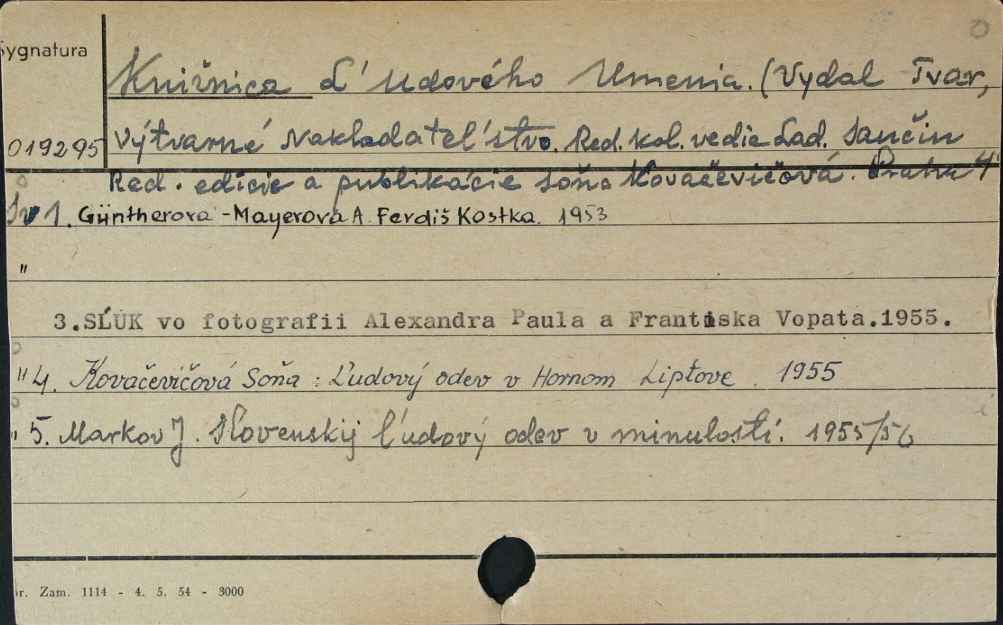 Sygnatura
Knižnica Ľ'udového Umenia. (Vydal Tvar,
019295 Výtvarné Nakladatel'stvo. Red. kol. vedie Lad. Saučin
Red. edície a publikácie Soňa Kovačevičová. Praha
Sv 1. Güntherova - Mayerová A. Ferdiš Kostka. 1953
"
3.SĽUK vo fotografii Alexandra Paula a Frantiska Vopata.1955.
" 4. Kovačevičová Soňa : Ľudový odev v Hornom Liptove. 1955
" 5. Markov J. Slovenskij ľudový odev v minulosti. 1955/56
r. Zam. 1114 - 4. 5. 54 - 3000